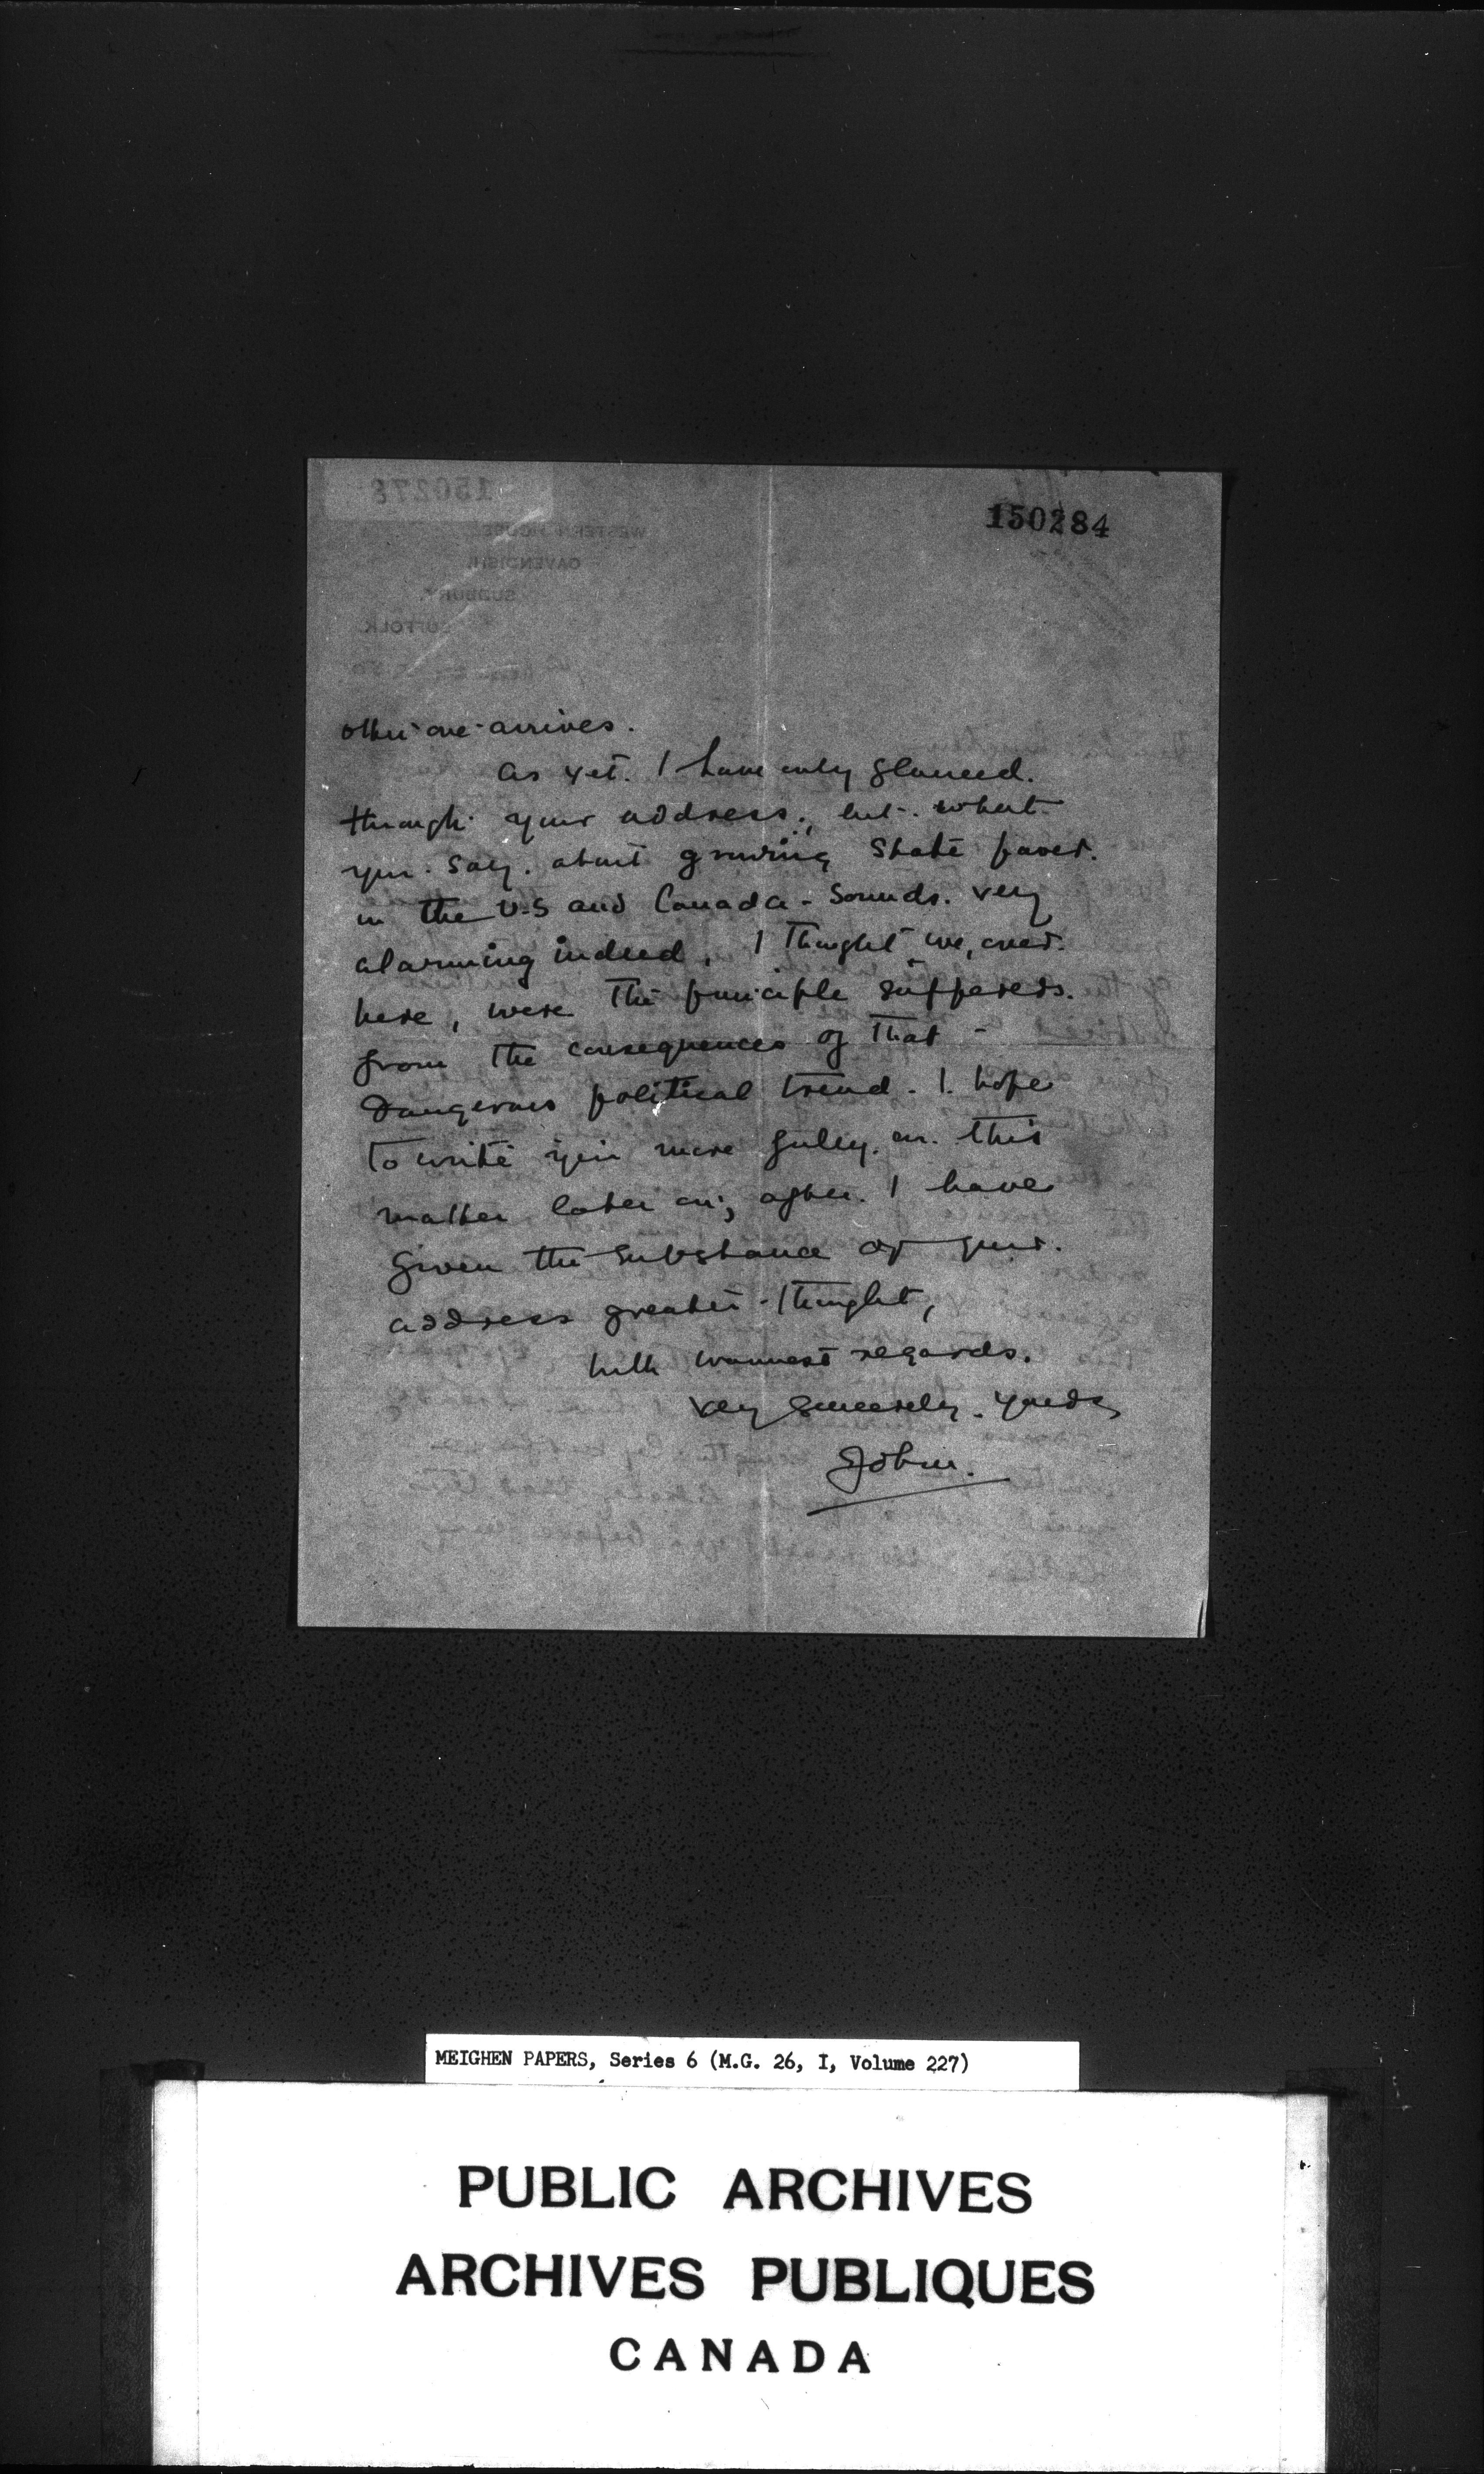 150284
other one arrives.
As yet. I have only glanced.
through your address; but what
you say. about growing State power.
in the U.S and Canada - sounds. very
alarming indeed. I thought we, over.
here, were the principle sufferers.
from the consequences of that -
dangerous political trend. I. hope
to write you more fully. on. this
matter later on; after. I have
given the substance of your.
address greater thought,
With warmest regards.
Very sincerely. yours,
John.
MEIGHEN PAPERS, Series 6 (M.G. 26, I, Volume 227)
PUBLIC ARCHIVES
ARCHIVES PUBLIQUES
CANADA